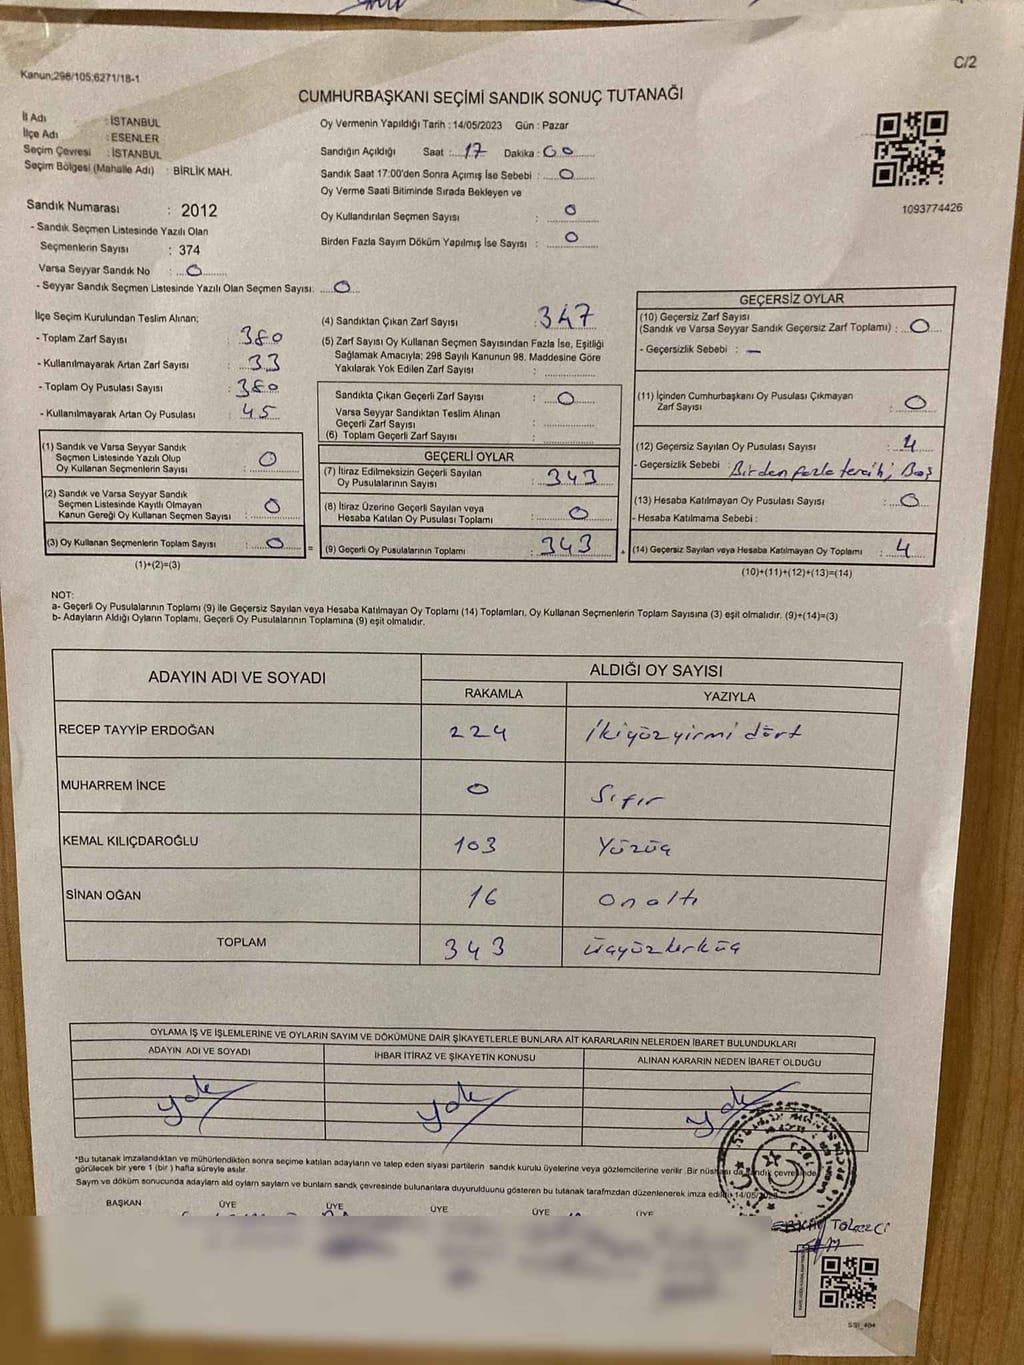 C/2
Kanun;298/105;6271/18-1
CUMHURBAŞKANI SEÇİMİ SANDIK SONUÇ TUTANAĞI
İl Adı : İSTANBUL
İlçe Adı : ESENLER
Seçim Çevresi : İSTANBUL
Seçim Bölgesi (Mahalle Adı) : BİRLİK MAH.
Oy Vermenin Yapıldığı Tarih : 14/05/2023 Gün : Pazar
Sandığın Açıldığı Saat : 17 Dakika : 00
Sandık Saat 17:00'den Sonra Açımış İse Sebebi : 0
Oy Verme Saati Bitiminde Sırada Bekleyen ve
Oy Kullandırılan Seçmen Sayısı : 0
Birden Fazla Sayım Döküm Yapılmış İse Sayısı : 0
1093774426
Sandık Numarası : 2012
- Sandık Seçmen Listesinde Yazılı Olan
Seçmenlerin Sayısı : 374
Varsa Seyyar Sandık No : 0
- Seyyar Sandık Seçmen Listesinde Yazılı Olan Seçmen Sayısı: 0
İlçe Seçim Kurulundan Teslim Alınan;
- Toplam Zarf Sayısı : 380
- Kullanılmayarak Artan Zarf Sayısı : 33
- Toplam Oy Pusulası Sayısı : 380
- Kullanılmayarak Artan Oy Pusulası : 45
(1) Sandık ve Varsa Seyyar Sandık
Seçmen Listesinde Yazılı Olup
Oy Kullanan Seçmenlerin Sayısı : 0
(2) Sandık ve Varsa Seyyar Sandık
Seçmen Listesinde Kayıtlı Olmayan
Kanun Gereği Oy Kullanan Seçmen Sayısı : 0
(3) Oy Kullanan Seçmenlerin Toplam Sayısı : 0
(1)+(2)=(3)
(4) Sandıktan Çıkan Zarf Sayısı : 347
(5) Zarf Sayısı Oy Kullanan Seçmen Sayısından Fazla İse, Eşitliği
Sağlamak Amacıyla; 298 Sayılı Kanunun 98. Maddesine Göre
Yakılarak Yok Edilen Zarf Sayısı :
Sandıkta Çıkan Geçerli Zarf Sayısı : 0
Varsa Seyyar Sandıktan Teslim Alınan
Geçerli Zarf Sayısı :
(6) Toplam Geçerli Zarf Sayısı :
GEÇERLİ OYLAR
(7) İtiraz Edilmeksizin Geçerli Sayılan
Oy Pusulalarının Sayısı : 343
(8) İtiraz Üzerine Geçerli Sayılan veya
Hesaba Katılan Oy Pusulası Toplamı : 0
= (9) Geçerli Oy Pusulalarının Toplamı : 343 +
GEÇERSİZ OYLAR
(10) Geçersiz Zarf Sayısı
(Sandık ve Varsa Seyyar Sandık Geçersiz Zarf Toplamı) : 0
- Geçersizlik Sebebi : —
(11) İçinden Cumhurbaşkanı Oy Pusulası Çıkmayan
Zarf Sayısı : 0
(12) Geçersiz Sayılan Oy Pusulası Sayısı : 4
- Geçersizlik Sebebi : Birden fazla tercih; Boş
(13) Hesaba Katılmayan Oy Pusulası Sayısı : 0
- Hesaba Katılmama Sebebi :
(14) Geçersiz Sayılan veya Hesaba Katılmayan Oy Toplamı : 4
(10)+(11)+(12)+(13)=(14)
NOT:
a- Geçerli Oy Pusulalarının Toplamı (9) ile Geçersiz Sayılan veya Hesaba Katılmayan Oy Toplamı (14) Toplamları, Oy Kullanan Seçmenlerin Toplam Sayısına (3) eşit olmalıdır. (9)+(14)=(3)
b- Adayların Aldığı Oyların Toplamı, Geçerli Oy Pusulalarının Toplamına (9) eşit olmalıdır.
ADAYIN ADI VE SOYADI ALDIĞI OY SAYISI
RAKAMLA YAZIYLA
RECEP TAYYİP ERDOĞAN 224 İkiyüzyirmi dört
MUHARREM İNCE 0 Sıfır
KEMAL KILIÇDAROĞLU 103 Yüzüç
SİNAN OĞAN 16 onaltı
TOPLAM 343 üçyüzkırküç
OYLAMA İŞ VE İŞLEMLERİNE VE OYLARIN SAYIM VE DÖKÜMÜNE DAİR ŞİKAYETLERLE BUNLARA AİT KARARLARIN NELERDEN İBARET BULUNDUKLARI
ADAYIN ADI VE SOYADI İHBAR İTİRAZ VE ŞİKAYETİN KONUSU ALINAN KARARIN NEDEN İBARET OLDUĞU
yok yok yok
*Bu tutanak imzalandıktan ve mühürlendikten sonra seçime katılan adayların ve talep eden siyasi partilerin sandık kurulu üyelerine veya gözlemcilerine verilir. Bir nüshası da sandık çevresinde
görülecek bir yere 1 (bir) hafta süreyle asılır.
Sayım ve döküm sonucunda adayların ald oyların sayların ve bunların sandk çevresinde bulunanlara duyurulduunu gösteren bu tutanak tarafmzdan düzenlenerek imza edildi. 14/05/2023
BAŞKAN ÜYE ÜYE ÜYE ÜYE ÜYE